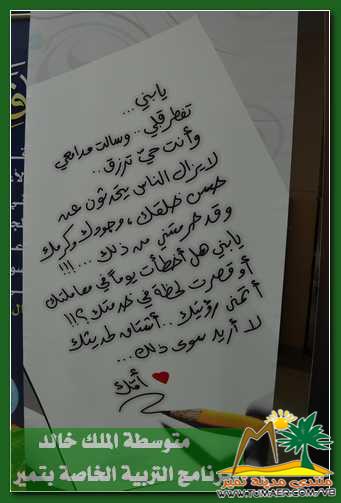 يا بني ...
تفطر قلبي .. وسالت مدامعي
وأنت حيّ ترزق ..
لا يزال الناس يتحدثون عن
حسن خلقك ، وجودك وكرمك
وقد حرمتني من ذلك ... !!!
يا بني هل أخطأت يوماً في معاملتك
أو قصرت لحظة في خدمتك ؟!!
أتمنى رؤيتك .. أشتاق لحديثك
لا أريد سوى ذلك ...
أمك
متوسطة الملك خالد
برنامج التربية الخاصة بتمير
منتدى مدينة تمير
WWW.TUMAER.COM/VB